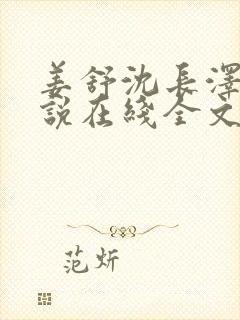 姜舒沈長澤
說在綫全文
范炘